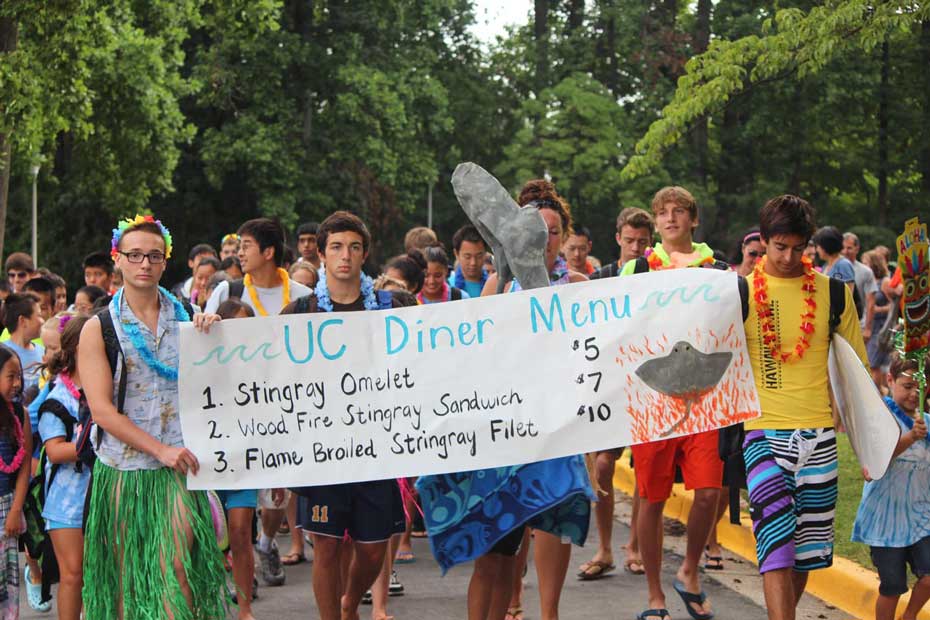 UC Diner Menu
1. Stingray Omelet $5
2. Wood Fire Stingray Sandwich $7
3. Flame Broiled Stringray Filet $10
HAWAII
11
ALOHA